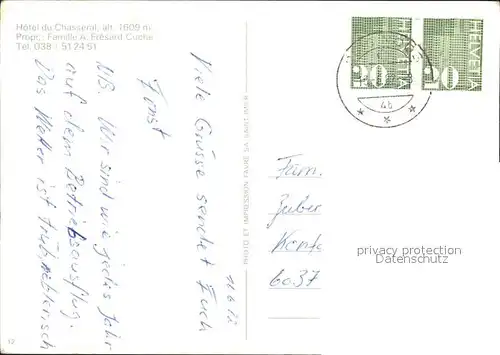 Hôtel du Chasseral, alt. 1609 m
Propr.: Famille A. Frésard Cuche
Tel. 038 / 51 24 51
Viele Grüsse sendet Euch
Ernst
NB. Wir sind wie jedes Jahr
auf dem Betriebsausflug.
Das Wetter ist trüb, neblerisch
PHOTO ET IMPRESSION FAVRE SA SAINT-IMIER
HELVETIA
20
HELVETIA
20
4b
Fam.
Zuber
6037
privacy protection
Datenschutz
12